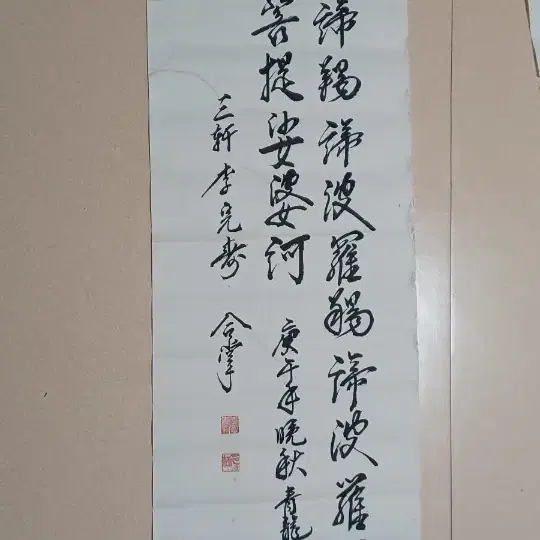 諦羯諦波羅羯諦波羅
菩提娑婆訶 庚午年晚秋青龍
三軒李完壽合掌